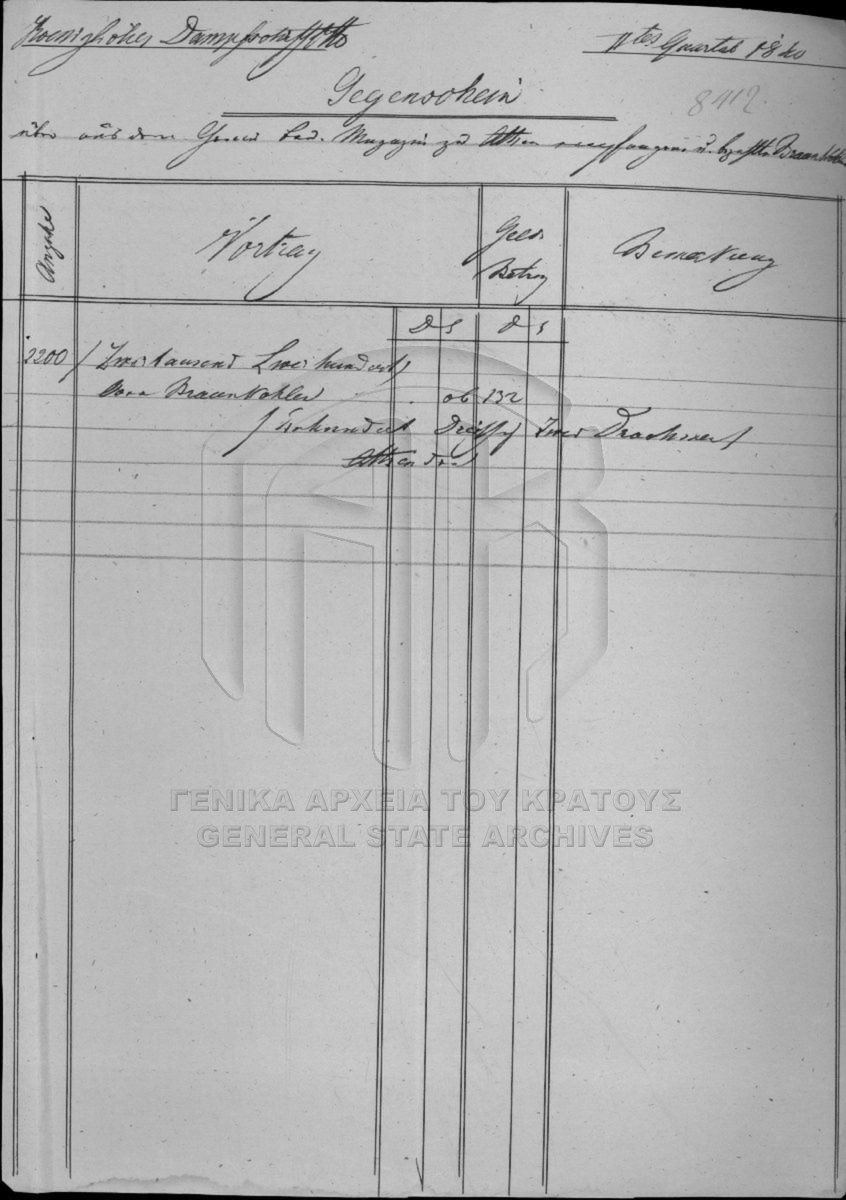 Koenigliches Dampfschiff Otto
IItes Quartal 1840
Gegenschein
8412
über aus dem Magazin zu Athen empfangene u. bezahlte Braunkohlen
Anzahl
Vortrag
Geld
Betrag
Bemerkung
D S D S
2200 / Zwei tausend Zwei hundert /
Oka Braunkohlen . 06 132
/ Einhundert Dreißig Zwei Drachmen /
Athen den
ΓΕΝΙΚΑ ΑΡΧΕΙΑ ΤΟΥ ΚΡΑΤΟΥΣ
GENERAL STATE ARCHIVES